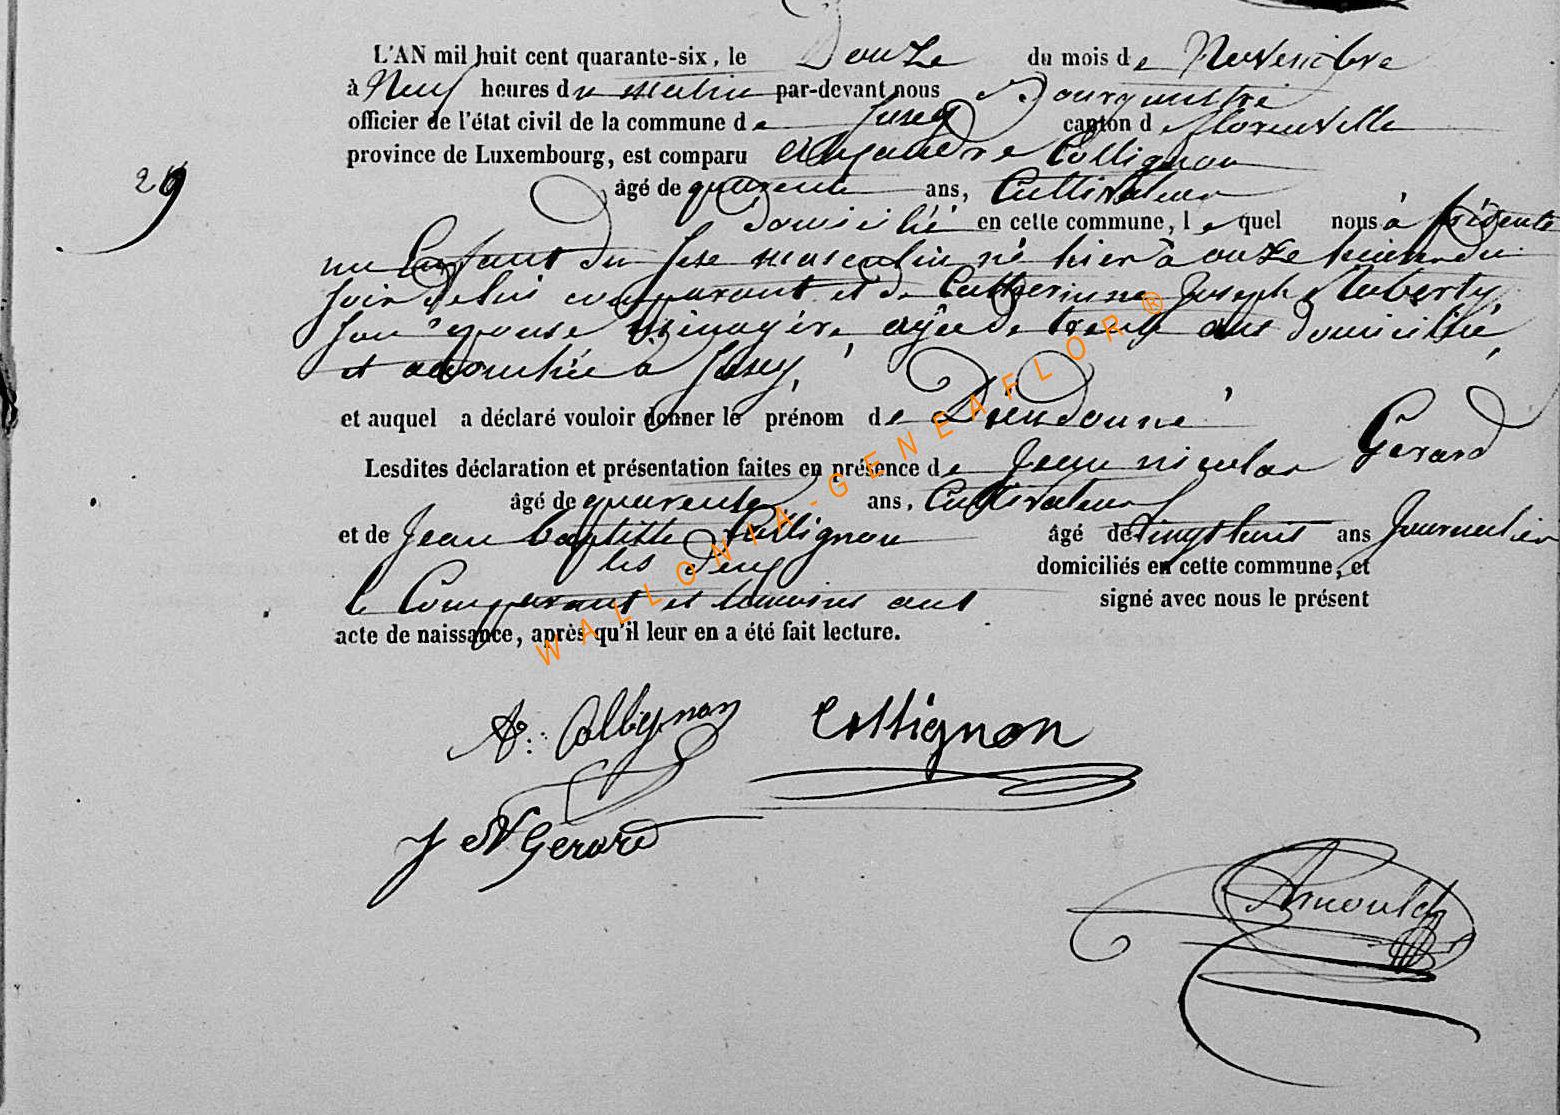 L'AN mil huit cent quarante-six, le Douze du mois de Novembre
à Neuf heures du matin par-devant nous Bourgmestre
officier de l'état civil de la commune de Jusey canton de florenville
province de Luxembourg, est comparu Alexandre Collignon
29
âgé de quarente ans, Cultivateur
domicilié en cette commune, lequel nous à présenté
un Enfant du sexe masculin né hier à onze heures du
soir de lui comparant et de Catherinne Joseph Huberty,
son épouse ménagère, agée de trente ans domiciliée
et accouchée à Jusey,
et auquel a déclaré vouloir donner le prénom de Dieudonné
Lesdites déclaration et présentation faites en présence de Jean nicolas Gerard
âgé de quarente ans, Cultivateur
et de Jean baptiste Collignon âgé de vingt huit ans Journalier
les deux domiciliés en cette commune, et
le Comparant et temoins ont signé avec nous le présent
acte de naissance, après qu'il leur en a été fait lecture.
A. Collignon Collignon
J N Gerard
Arnould
WALLONIA-GENEAFLOR ®